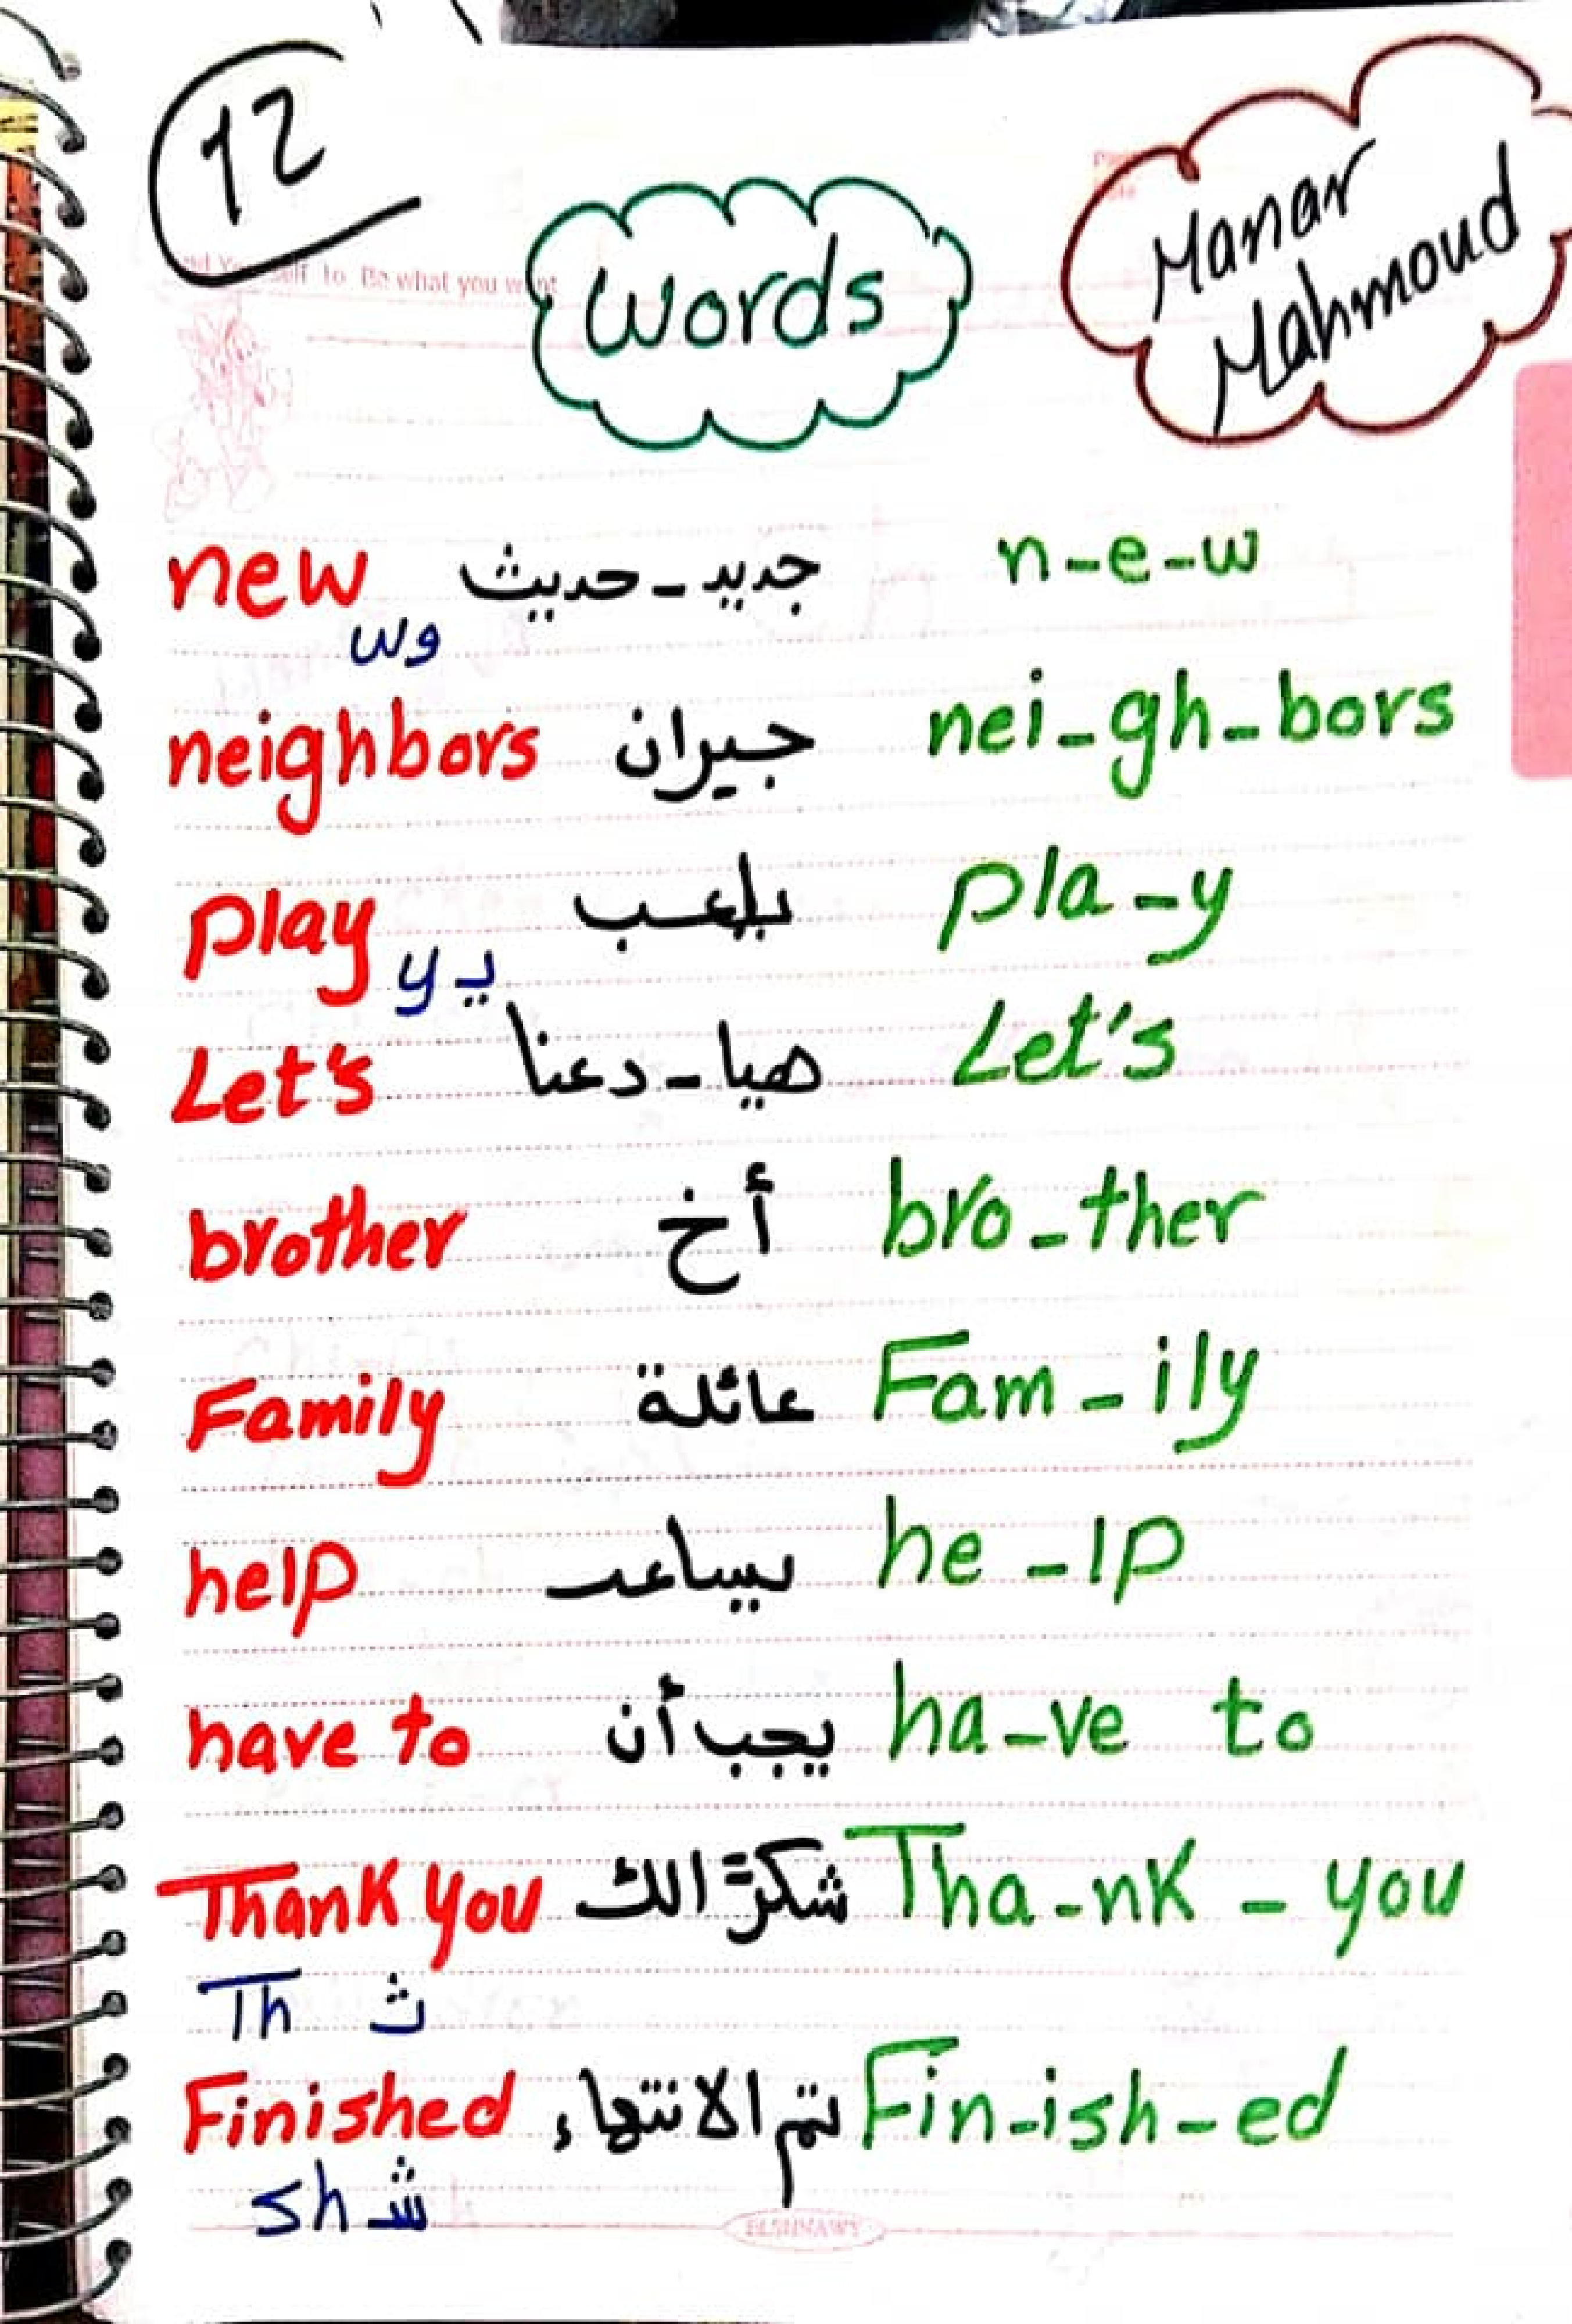 12
Words
Manar
Mahmoud
to Be what you want
new جديد - حديث n-e-w
w و
neighbors جيران nei-gh-bors
play يلعب pla-y
y يـ
Let's هيا - دعنا Let's
brother أخ bro-ther
Family عائلة Fam-ily
help يساعد he-lp
have to يجب أن ha-ve to
Thank you شكرًا لك Tha-nk-you
Th ث
Finished تم الانتهاء Fin-ish-ed
sh شـ
ELSHNAWY